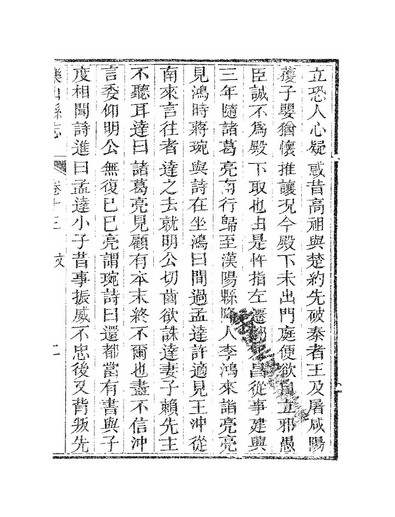 立恐人心疑惑昔高祖與楚約先破秦者王及屠咸陽
獲子嬰猶懷推讓況今殿下未出門庭便欲自立邪愚
臣誠不為殿下取也由是忤指左遷昌從事建興
三年隨諸葛亮南行歸至漢陽縣降人李鴻來詣亮亮
見鴻時蔣琬與詩在坐鴻曰間過孟達許適見王沖從
南來言往者達之去就明公切齒欲誅達妻子賴先主
不聽耳達曰諸葛亮見顧有本末終不爾也盡不信沖
言委仰明公無復已已亮謂琬詩曰還都當有書與子
度相聞詩進曰孟達小子昔事振威不忠後又背叛先
樂山縣志 卷十三 文 二